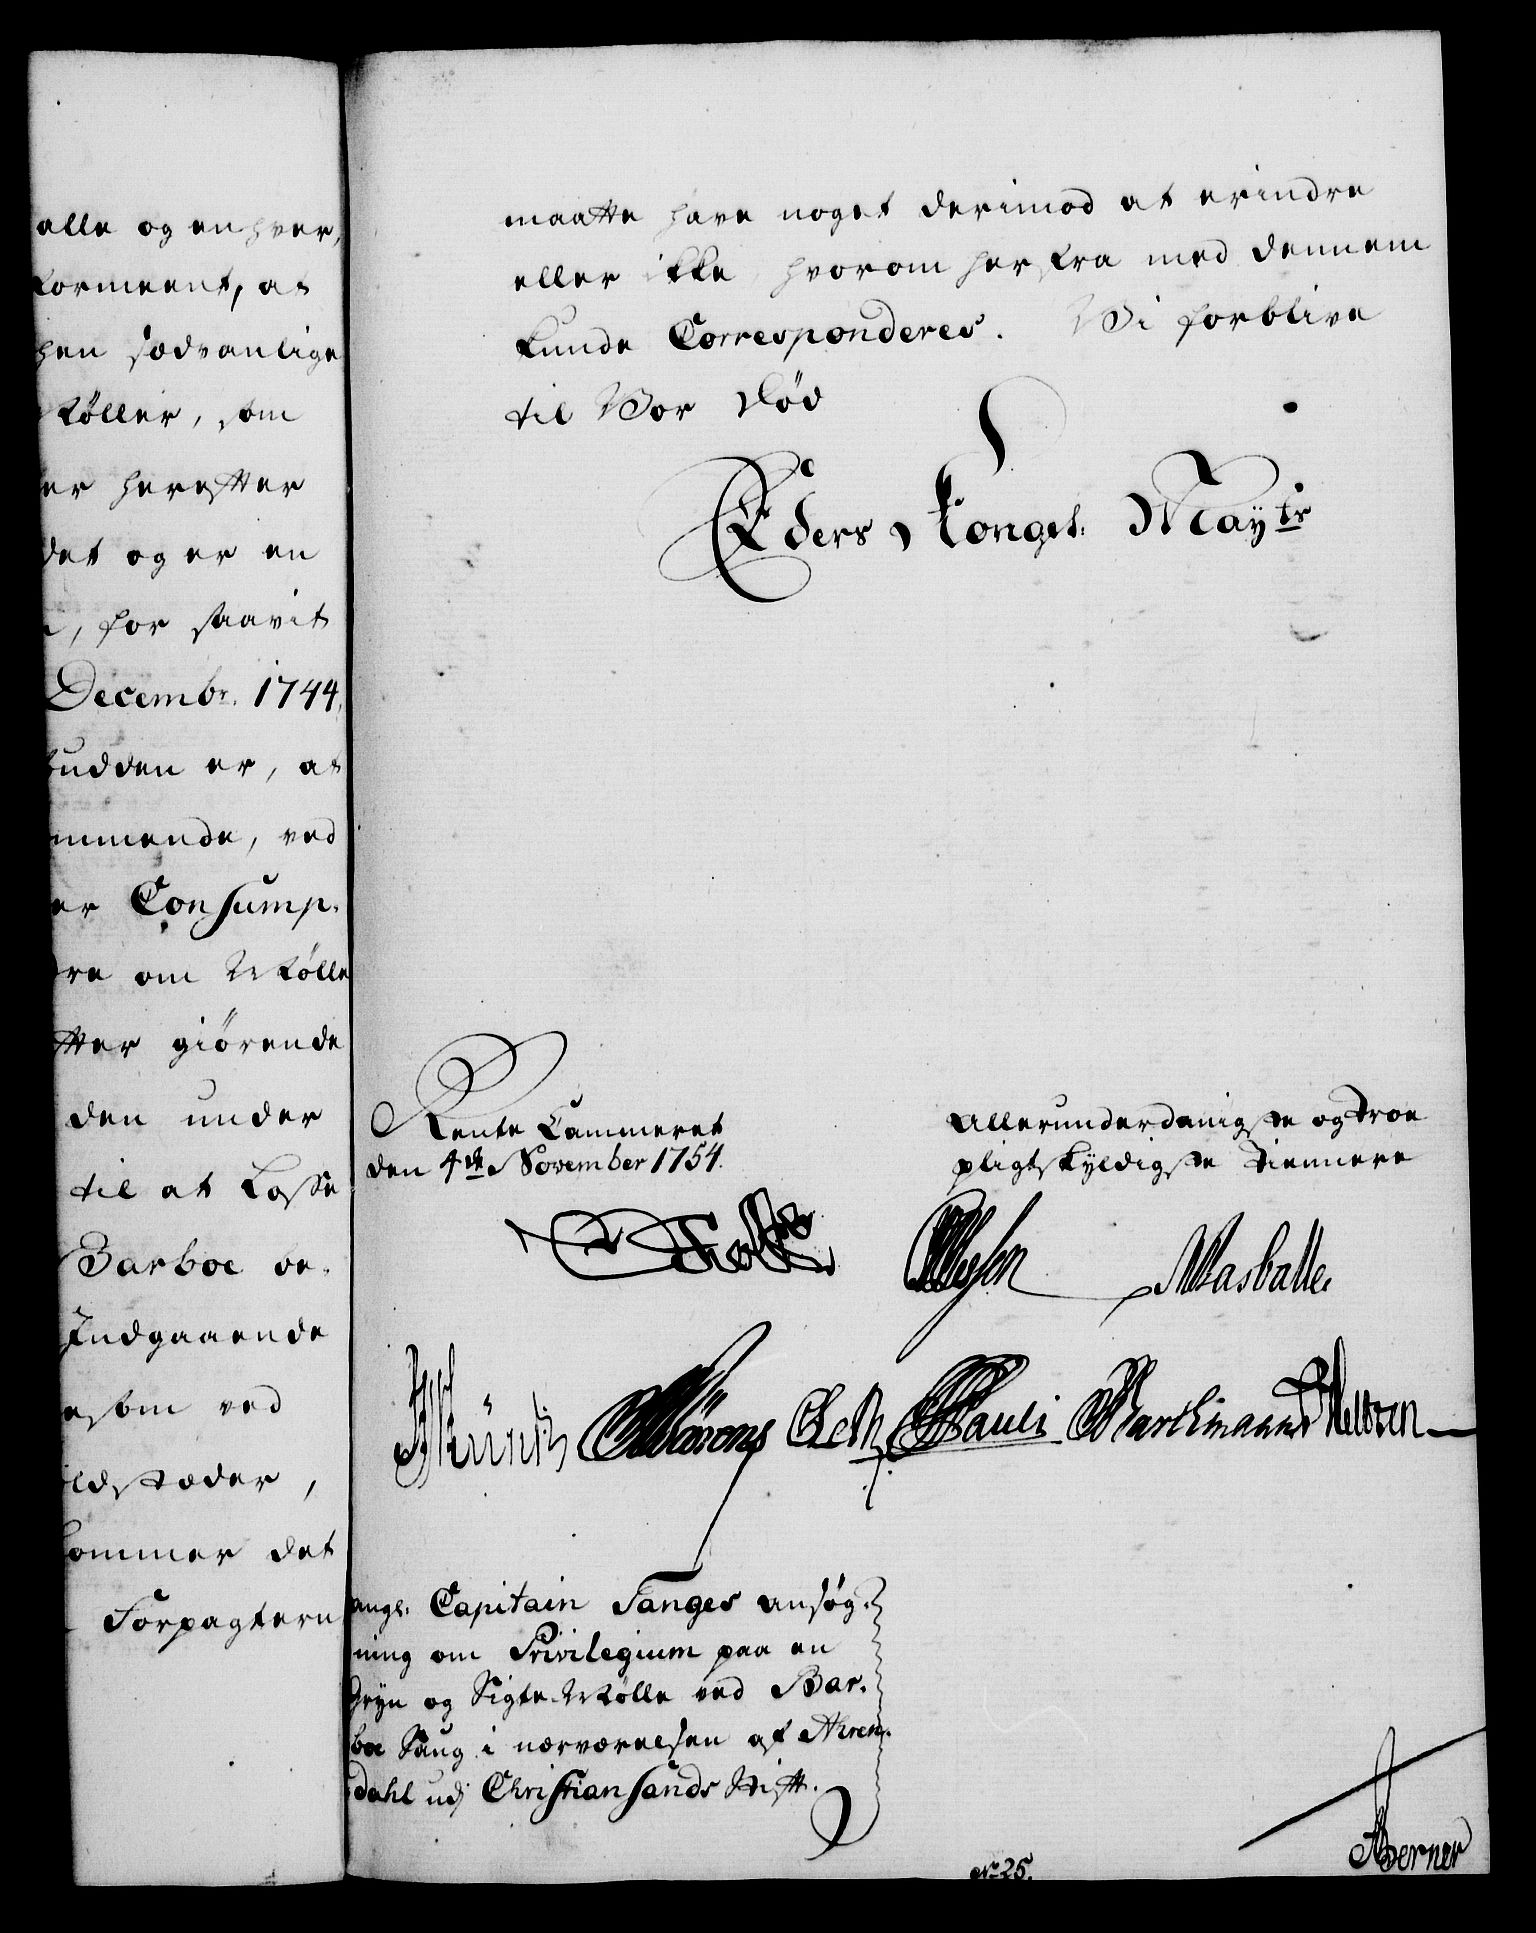 alle og enhver,
formeent, at
hen sædvanlige
Møller, som
er herefter
det og er en
, for saavit
Decembr. 1744,
budden er, at
mmende, ved
er Consump-
dre om Mølle
tter giørende
den under
til at Losse
Barboe be-
Indgaaende
esom ved
ildstæder,
kommer det
Forpagtern
maatte have noget derimod at erindre
eller ikke, hvorom herfra med dennem
kunde Corresponderes. Vi forblive
til Vor Død
Eders Kongel: Mayts
Rente Cammeret
den 4de November 1754.
Allerunderdanigste og troe
pligtskyldigste Tiennere
Holst Masballe.
Pauli Barthmann
ang: Capitain Tanges ansøg-
ning om Privilegium paa en
Gryn og Sigte-Mølle ved Bar-
boe Saug i nærværelsen af Ahren-
dahl udj Christiansands Stift.
No 25.
Berner